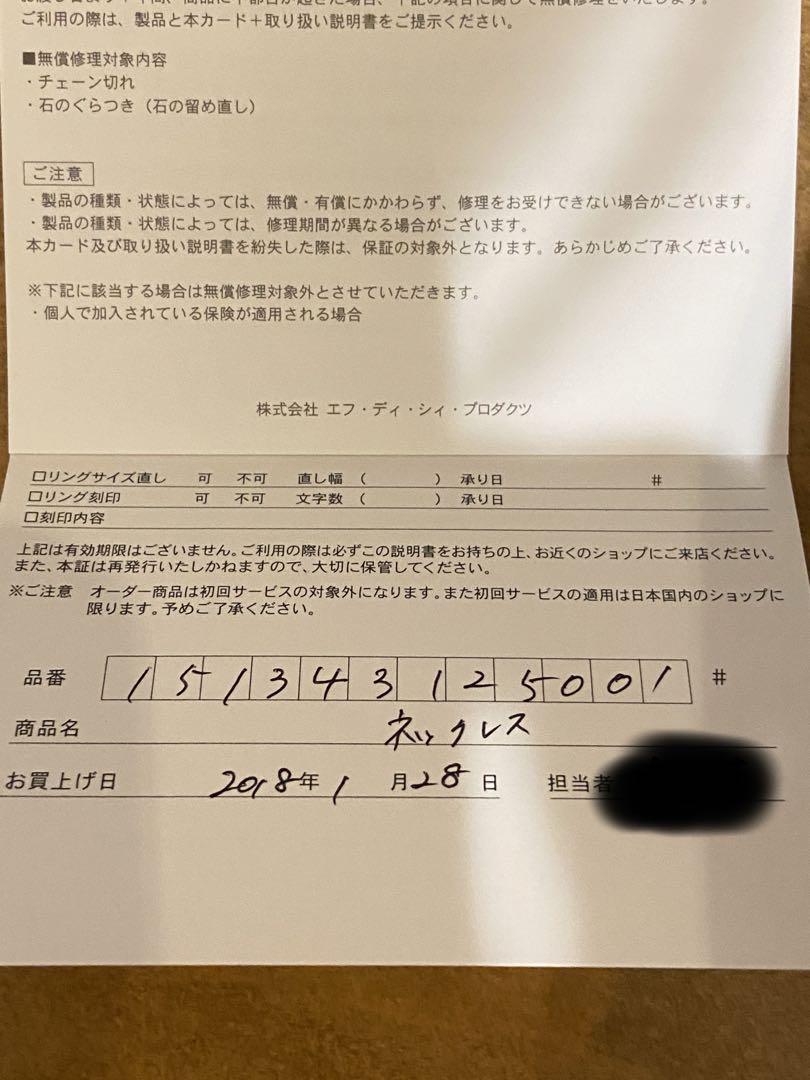 ご利用の際は、製品と本カード＋取り扱い説明書をご提示ください。
■無償修理対象内容
・チェーン切れ
・石のぐらつき（石の留め直し）
ご注意
・製品の種類・状態によっては、無償・有償にかかわらず、修理をお受けできない場合がございます。
・製品の種類・状態によっては、修理期間が異なる場合がございます。
本カード及び取り扱い説明書を紛失した際は、保証の対象外となります。あらかじめご了承ください。
※下記に該当する場合は無償修理対象外とさせていただきます。
・個人で加入されている保険が適用される場合
株式会社 エフ・ディ・シィ・プロダクツ
□リングサイズ直し 可 不可 直し幅（ ） 承り日 #
□リング刻印 可 不可 文字数（ ） 承り日
□刻印内容
上記は有効期限はございません。ご利用の際は必ずこの説明書をお持ちの上、お近くのショップにご来店ください。
また、本証は再発行いたしかねますので、大切に保管してください。
※ご注意 オーダー商品は初回サービスの対象外になります。また初回サービスの適用は日本国内のショップに
限ります。予めご了承ください。
品番 151343125001 #
商品名 ネックレス
お買上げ日 2018年1月28日 担当者